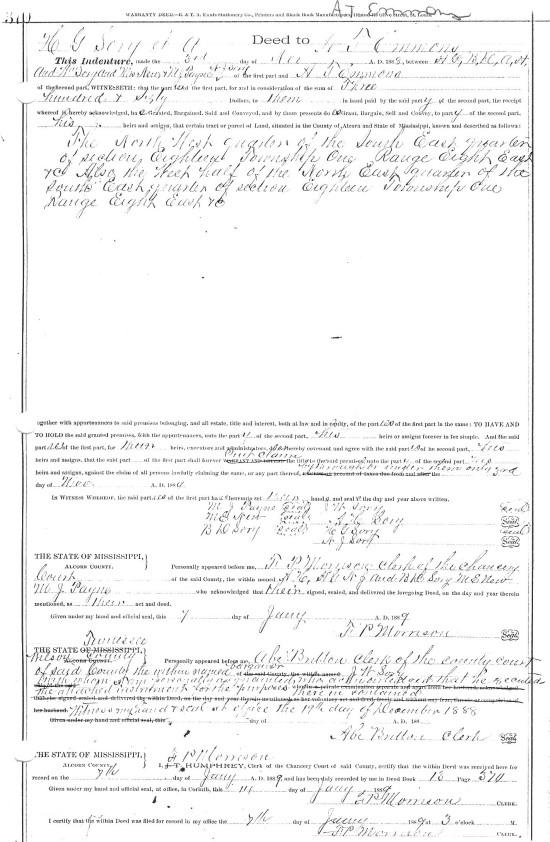 A T Emmons
310
WARRANTY DEED.
H G Sory et al Deed to A T Emmons
This Indenture, made the 3rd day of Nov A. D. 1888, between H. G., B. D., A. H.
And W Sory and M. J. Payne of the first part and A T Emmons
of the second part, WITNESSETH: that the part of the first part, for and in consideration of the sum of Three
hundred & Sixty Dollars, to them in hand paid by the said party of the second part, the receipt
whereof is hereby acknowledged, have Granted, Bargained, Sold and Conveyed, and by these presents do Grant, Bargain, Sell and Convey, to party of the second part,
his heirs and assigns, that certain tract or parcel of Land, situated in the County of Alcorn and State of Mississippi, known and described as follows:
The North West quarter of the South East quarter
of section Eighteen Township One Range Eight East
&c Also the West half of the North East quarter of the
South East quarter of section Eighteen Township One
Range Eight East &c
together with appurtenances to said premises belonging, and all estate, title and interest, both at law and in equity, of the parties of the first part in the same: TO HAVE AND
TO HOLD the said granted premises, with the appurtenances, unto the party of the second part, his heirs or assigns forever in fee simple. And the said
parties of the first part, for their heirs, executors and administrators, do hereby covenant and agree with the said of the second part, his
Quit Claim
heirs and assigns, that the said of the first part shall forever WARRANT AND the title to the said premises unto the part of the second part
by through or under them only 3rd
heirs and assigns, against the claim of all persons lawfully claiming the same, or any part thereof,
day of Nov A. D. 188
IN WITNESS WHEREOF, the said parties of the first part have hereunto set their hands and seals the day and year above written.
M. J. Payne Seal J W Sory Seal
M E New Seal A H Sory Seal
B D Sory Seal H G Sory Seal
N J Sory Seal
THE STATE OF MISSISSIPPI,
ALCORN COUNTY. Personally appeared before me, F. P. Morrison Clerk of the Chancery
Court of the said County, the within named H. G., A H N J and B D Sory M E New
M. J. Payne who acknowledged that their signed, sealed, and delivered the foregoing Deed, on the day and year therein
mentioned, as their act and deed.
Given under my hand and official seal, this 7 day of Jany A. D. 1889
F P Morrison
Seal
Tennessee
THE STATE OF MISSISSIPPI,
Wilson County
ALCORN COUNTY. Personally appeared before me, Abe Britton Clerk of the county court
of said County the within named bargainor J W Sory
with whom I am personally acquainted, who acknowledged that he executed
the attached instrument for the purposes therein contained
Witness my hand & seal at office the 19th day of December 1888
Given under my hand and official seal, this day of A. D. 188
Abe Britton Clerk
THE STATE OF MISSISSIPPI, F P Morrison
ALCORN COUNTY. I, T. HUMPHREY, Clerk of the Chancery Court of said County, certify that the within Deed was received here for
record on the 7th day of Jany A. D. 1889 and has been duly recorded by me in Deed Book 13 Page 370
Given under my hand and official seal, at office, in Corinth, this day of Jany 1889
F P Morrison CLERK.
I certify that the within Deed was filed for record in my office the 7th day of Jany 1889 at 3 o'clock M.
F P Morrison CLERK.